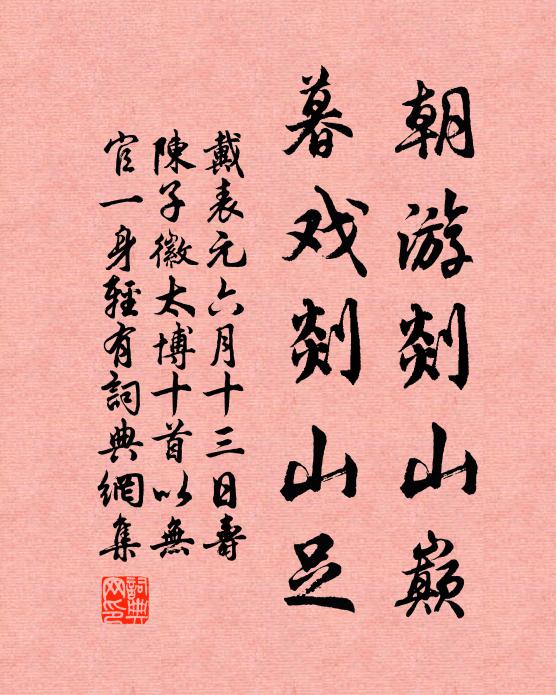 朝游剡山巅
暮戏剡山足
戴表元六月十三日壽
陳子徽太博十首以無
官一身輕有詞典網集
詞典
网印